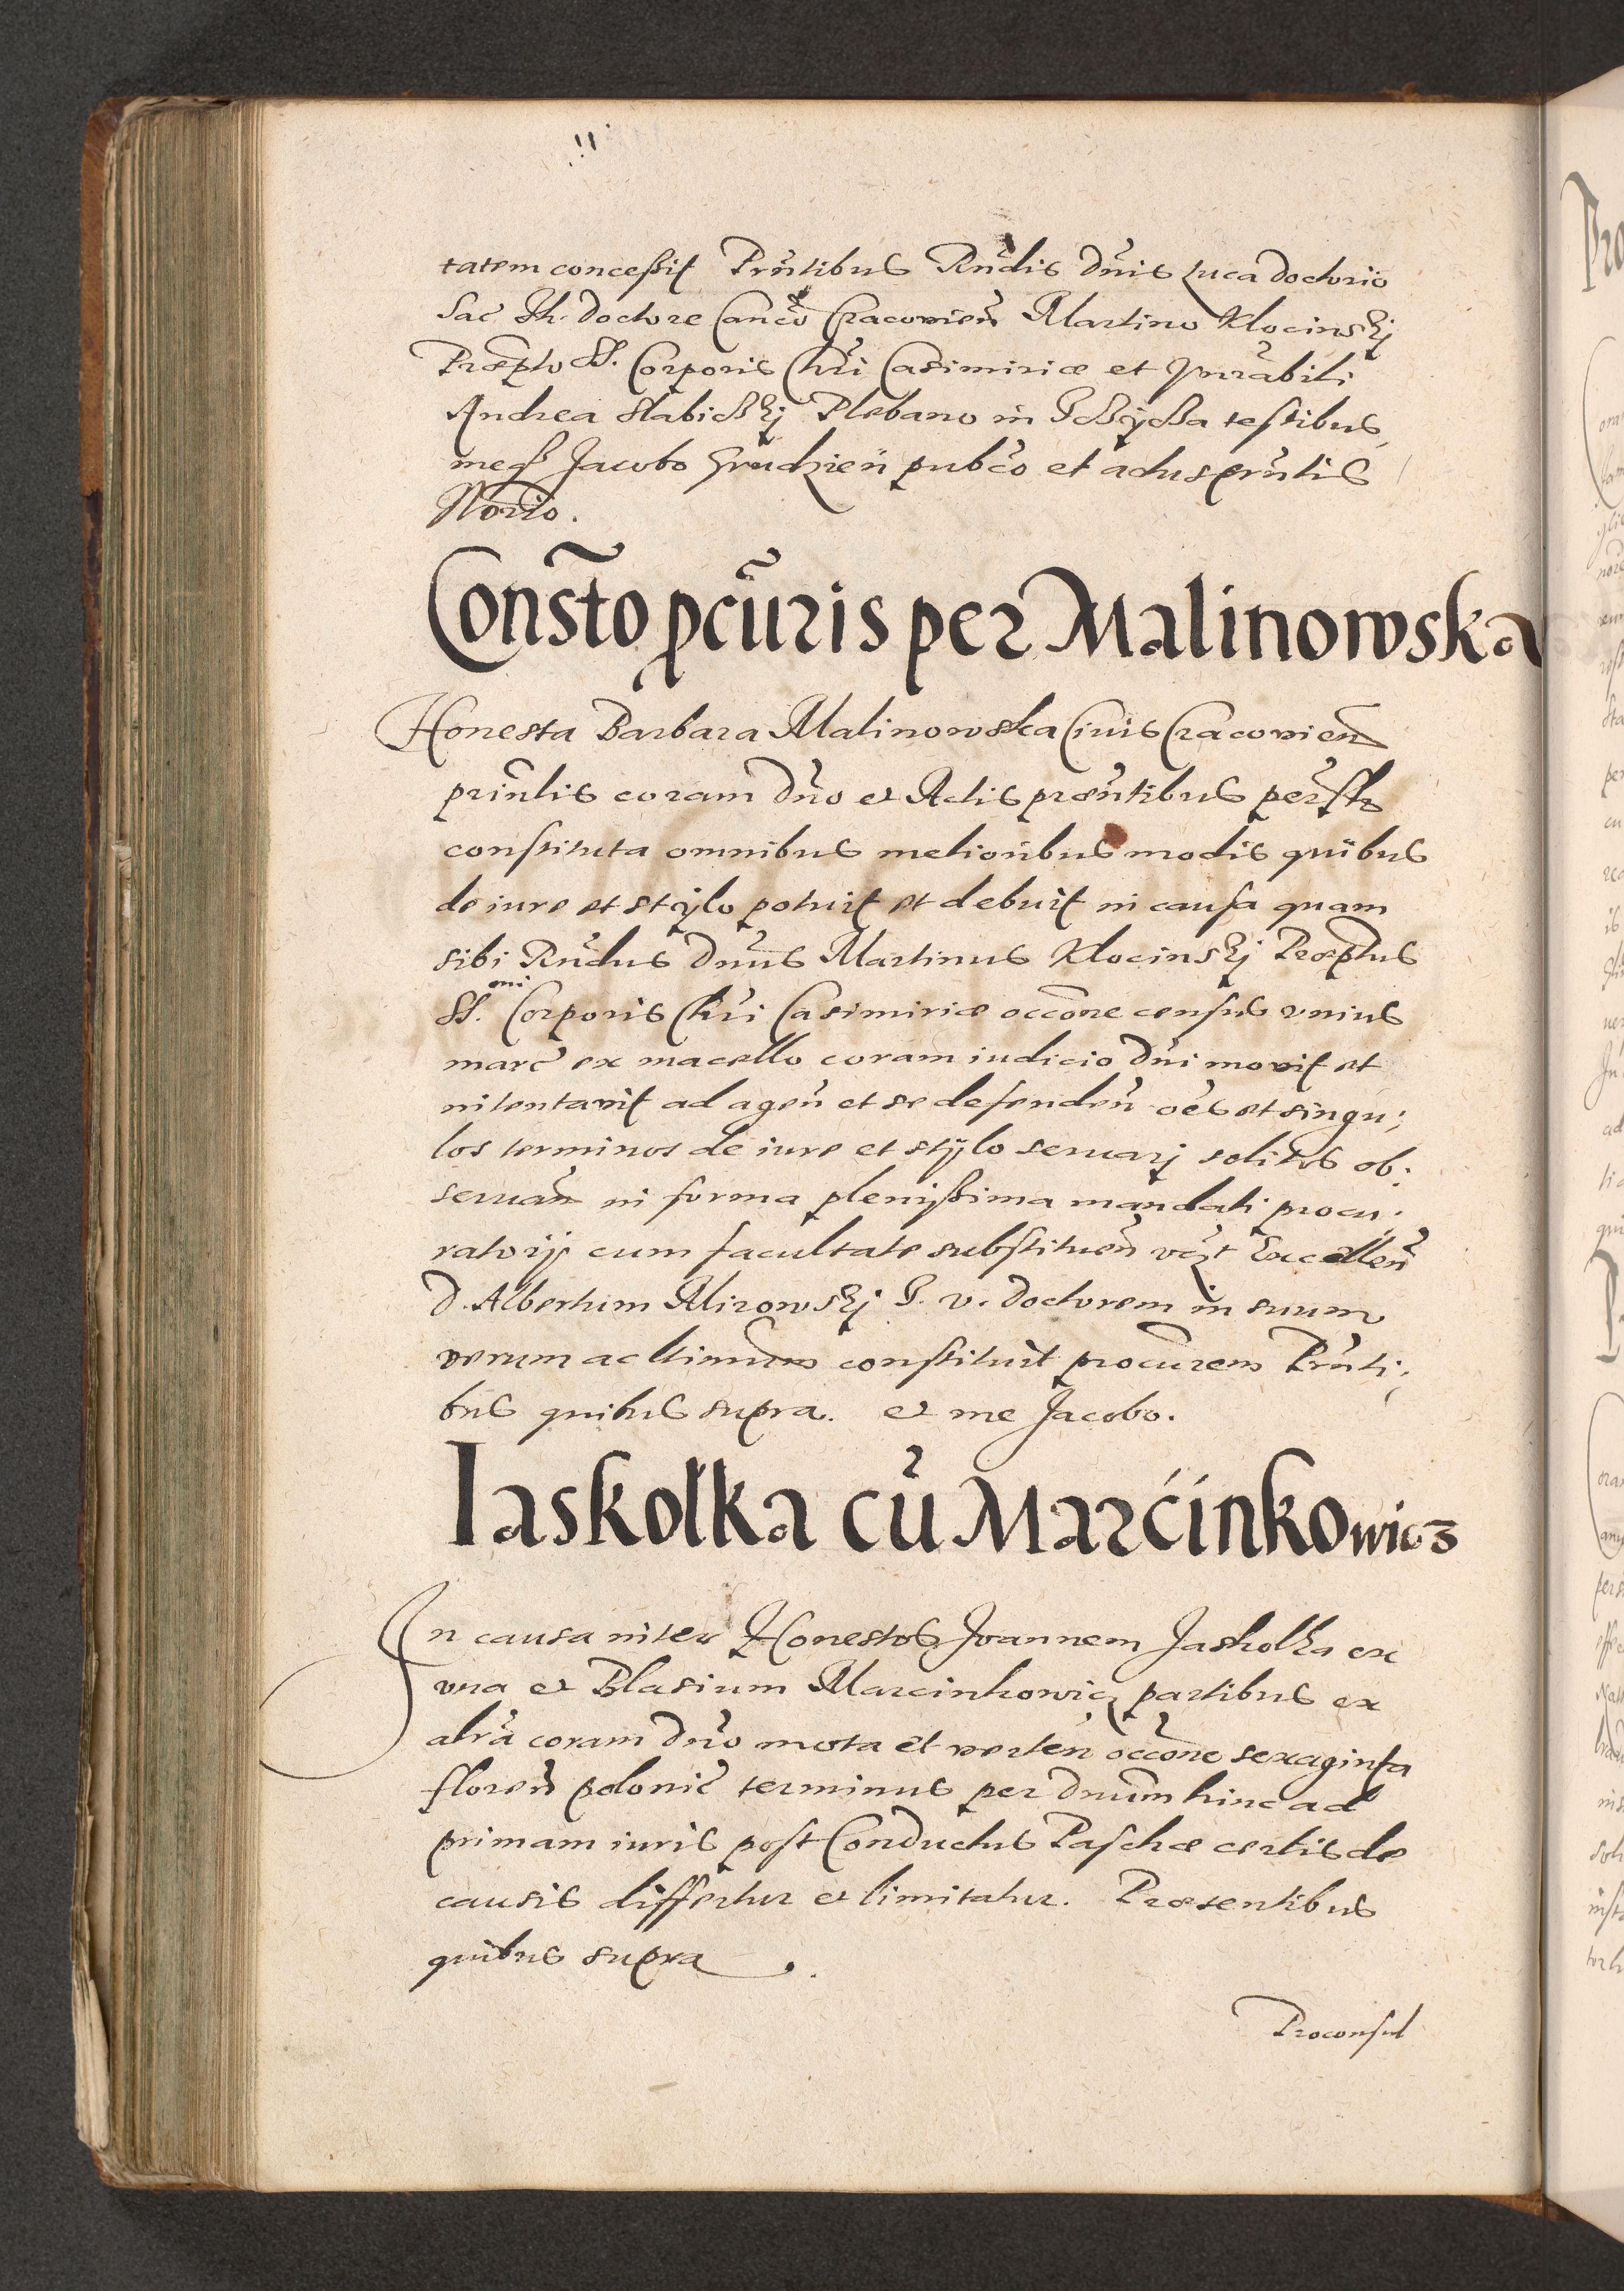 tatem conceßit Prñtibus Rñdis Dñis Luca Doctorio
Sac Th. Doctore Canco Cracovien̄ Martino Klocinskj
Præpto SS. Corporis Chri Casimiriæ et Vnrabili
Andrea Slabißkj Plebano in testibus
meqꝫ Jacobo Grudzien pubco et actus prñtis
Norio.
Consto pcuris per Malinowska
Honesta Barbara Malinowska Civis Cracovien̄
prinlis coram Dño et Actis præntibus perslr
constituta omnibus melioribus modis quibus
de iure et stylo potuit et debuit in causa quam
sibi Rndus Dnus Martinus Klocinskj Præptus
SS.mi Corporis Chri Casimiriæ occone census unius
marc ex macello coram iudicio Dni movit et
intentavit ad agen̄ et se defenden̄ oēs et singu;
los terminos de iure et stylo servarj solitos ob:
servan̄ in forma plenißima mandati procu:
ratorij cum facultate substituen̄ vczt Excellen̄
D. Albertum Mirowskj J. V. Doctorem in suum
verum ac ltimum constituit procurem Prnti;
bus quibus supra. et me Jacobo.
Iaskolka cū Marcinkowicz
In causa inter Honestos Joannem Jaskolka ex
una et Blasium Marcinkowicz partibus ex
altra coram Dño mota et verten̄ occone sexaginta
floren̄ polonic terminus per Dnum hinc ad
primam iuris post Conductus Paschæ certis de
causis differtur et limitatur. Præsentibus
quibus supra.
Proconsul